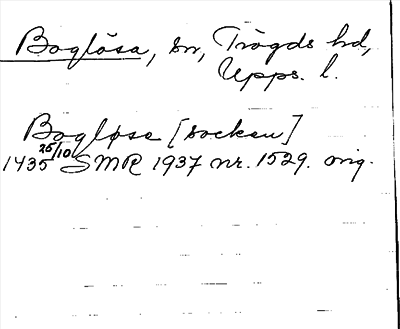 Boglösa, sn, Trögds hd,
Upps. l.
Bogløse [socken]
1435 25/10 SMR 1937 nr. 1529. orig.